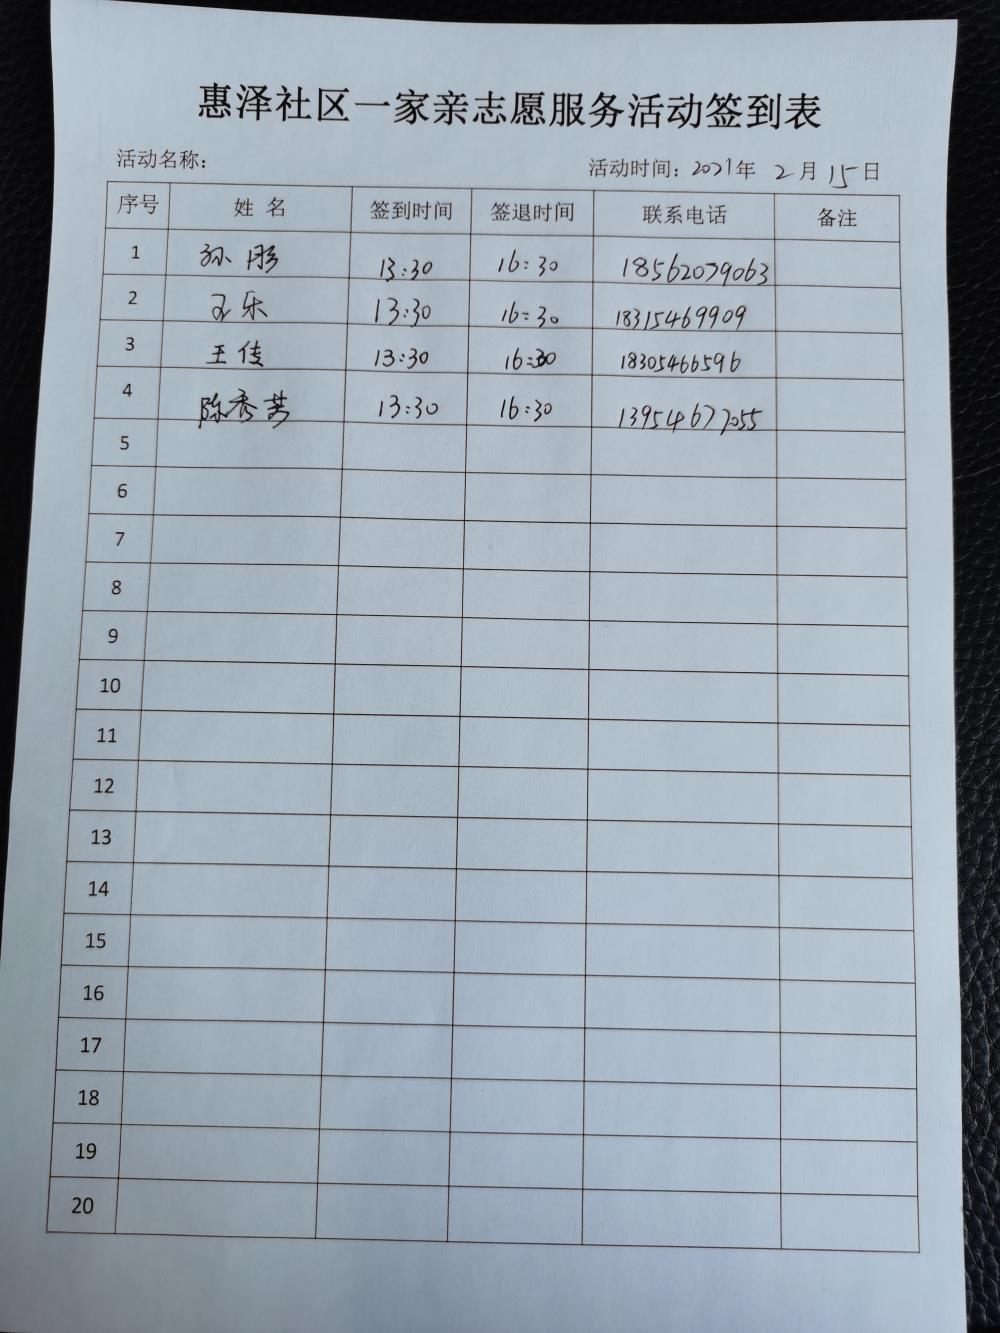 惠泽社区一家亲志愿服务活动签到表
活动名称: 活动时间: 2021年 2月 15日
序号 姓 名 签到时间 签退时间 联系电话 备注
1 孙彤 13:30 16:30 18562079063
2 王乐 13:30 16:30 18315469909
3 王佳 13:30 16:30 18305466596
4 陈秀 13:30 16:30 13954677055
5
6
7
8
9
10
11
12
13
14
15
16
17
18
19
20